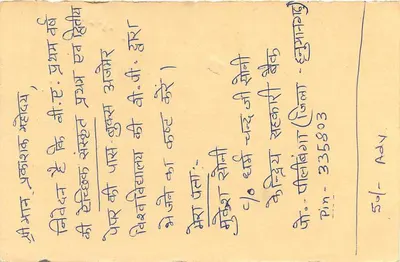 श्री मान, प्रकाशक महोदय,
निवेदन है कि बी.ए. प्रथम वर्ष
की ऐच्छिक संस्कृत प्रथम एवं द्वितीय
पेपर की पास बुक्स अजमेर
विश्वविद्यालय की वी.पी. द्वारा
भेजने का कष्ट करें।
मेरा पता:-
मुकेश सोनी
c/o धर्म चन्द जी सोनी
केन्द्रिय सहकारी बैंक
पो.- पीलीबंगा (जिला - हनुमानगढ़)
Pin - 335803
50/- Adv.